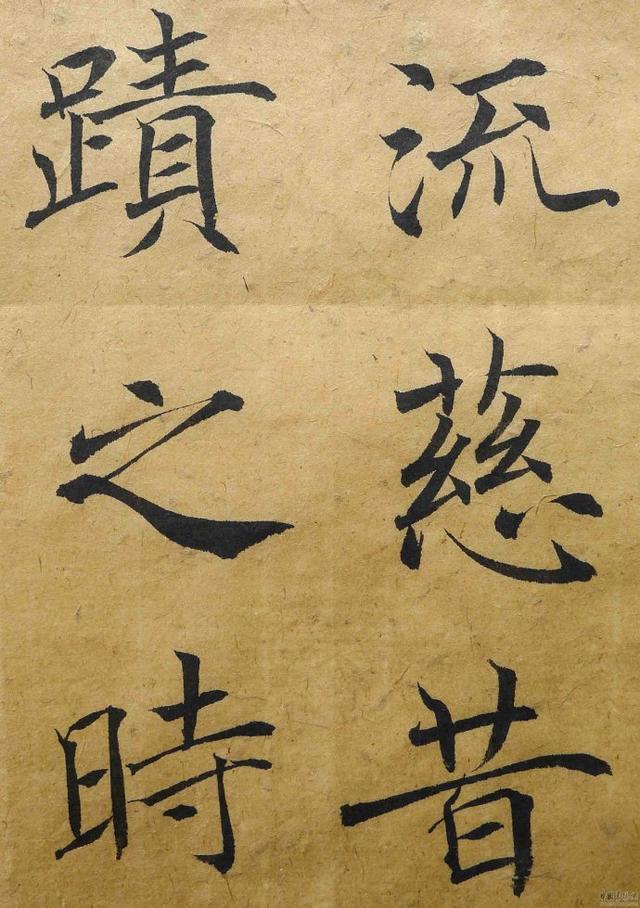 流慈昔
蹟之時